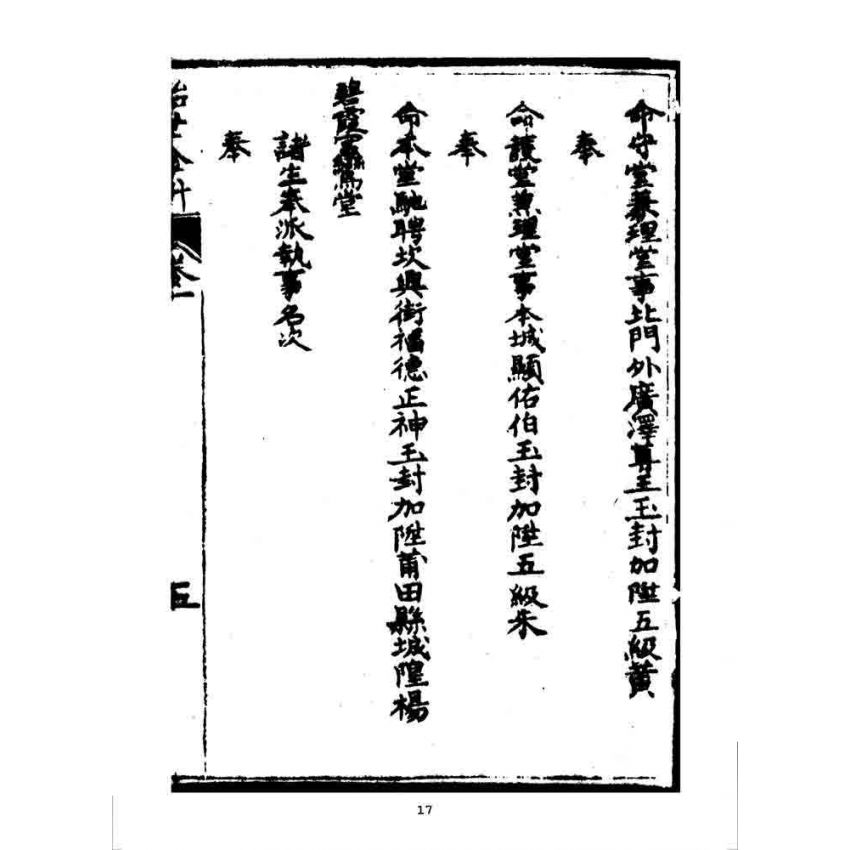 命守堂兼理堂事北門外廣澤尊王玉封加陞五級黃
奉
命護堂兼理堂事本城顯佑伯玉封加陞五級朱
奉
命本堂馳聘坎興街福德正神玉封加陞莆田縣城隍楊
碧霞寓鸞堂
諸生奉派執事名次
奉
治世金針 卷一 五
17